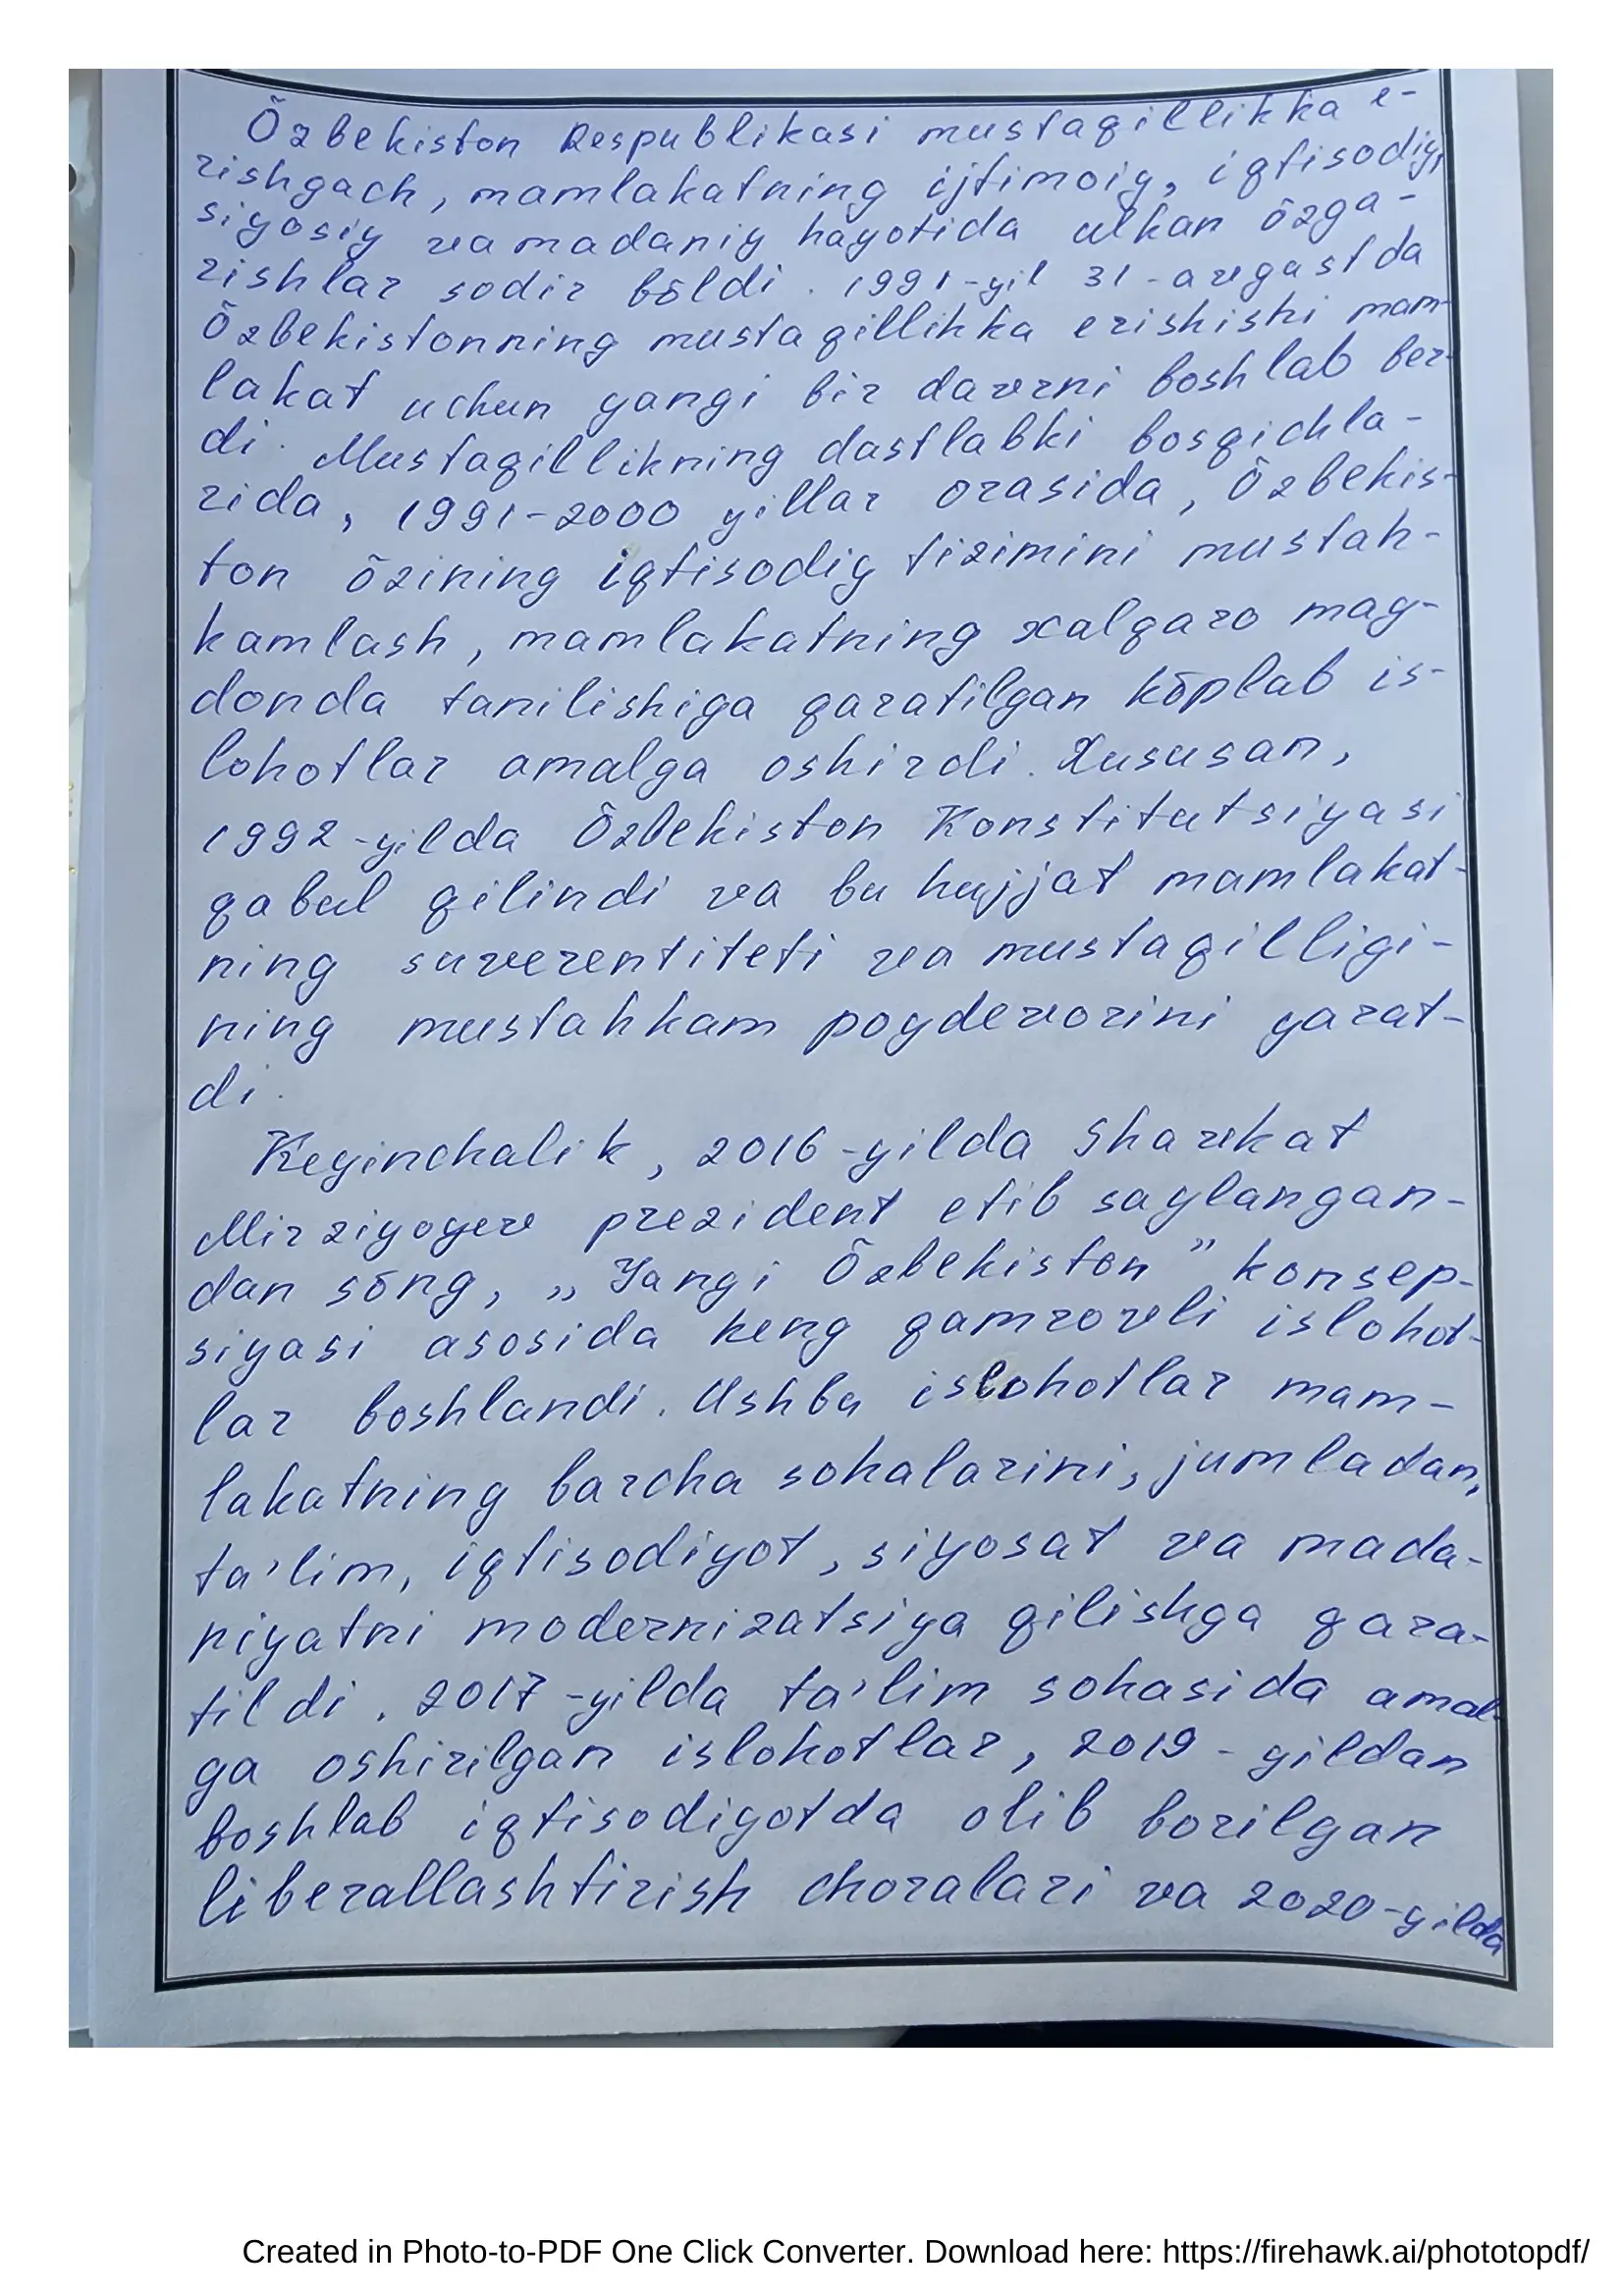 Õzbekiston Respublikasi mustaqillikka e-
rishgach, mamlakatning ijtimoiy, iqtisodiy,
siyosiy va madaniy hayotida ulkan õzga-
rishlar sodir bõldi. 1991-yil 31-avgustda
Õzbekistonning mustaqillikka erishishi mam-
lakat uchun yangi bir davrni boshlab ber-
di. Mustaqillikning dastlabki bosqichla-
rida, 1991-2000 yillar orasida, Õzbekis-
ton õzining iqtisodiy tizimini mustah-
kamlash, mamlakatning xalqaro may-
donda tanilishiga qaratilgan kõplab is-
lohotlar amalga oshirdi. Xususan,
1992-yilda Õzbekiston Konstitutsiyasi
qabul qilindi va bu hujjat mamlakat-
ning suverentiteti va mustaqilligi-
ning mustahkam poydevorini yarat-
di.
Keyinchalik, 2016-yilda Shavkat
Mirziyoyev prezident etib saylangan-
dan sõng, „Yangi Õzbekiston” konsep-
siyasi asosida keng qamrovli islohot-
lar boshlandi. Ushbu islohotlar mam-
lakatning barcha sohalarini, jumladan,
ta'lim, iqtisodiyot, siyosat va mada-
niyatni modernizatsiya qilishga qara-
tildi. 2017-yilda ta'lim sohasida amal-
ga oshirilgan islohotlar, 2019-yildan
boshlab iqtisodiyotda olib borilgan
liberallashtirish choralari va 2020-yilda
Created in Photo-to-PDF One Click Converter. Download here: https://firehawk.ai/phototopdf/